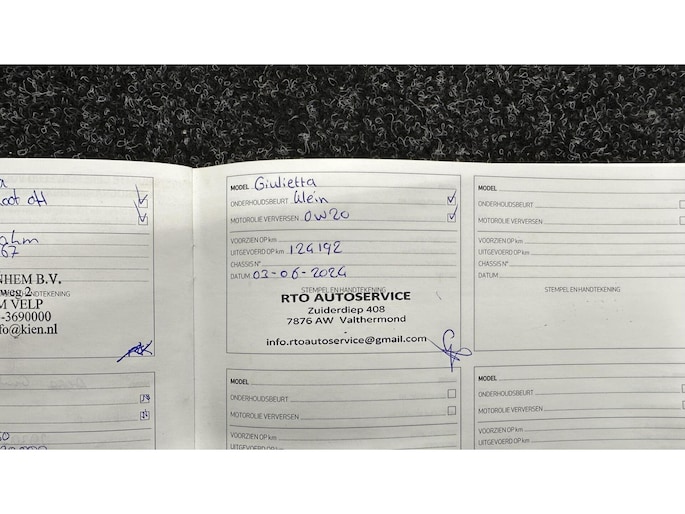 oot olt
ahm
67
NHEM B.V.
weg 2
M VELP
-3690000
fo@kien.nl
MODEL Giulietta
ONDERHOUDSBEURT klein
MOTOROLIE VERVERSEN 0W20
VOORZIEN OP km
UITGEVOERD OP km 124192
CHASSIS N°
DATUM: 03-06-2024
STEMPEL EN HANDTEKENING
RTO AUTOSERVICE
Zuiderdiep 408
7876 AW Valthermond
info.rtoautoservice@gmail.com
MODEL
ONDERHOUDSBEURT
MOTOROLIE VERVERSEN
VOORZIEN OP km
UITGEVOERD OP km
CHASSIS N°
DATUM:
STEMPEL EN HANDTEKENING
MODEL
ONDERHOUDSBEURT
MOTOROLIE VERVERSEN
VOORZIEN OP km
UITGEVOERD OP km
MODEL
ONDERHOUDSBEURT
MOTOROLIE VERVERSEN
VOORZIEN OP km
UITGEVOERD OP km